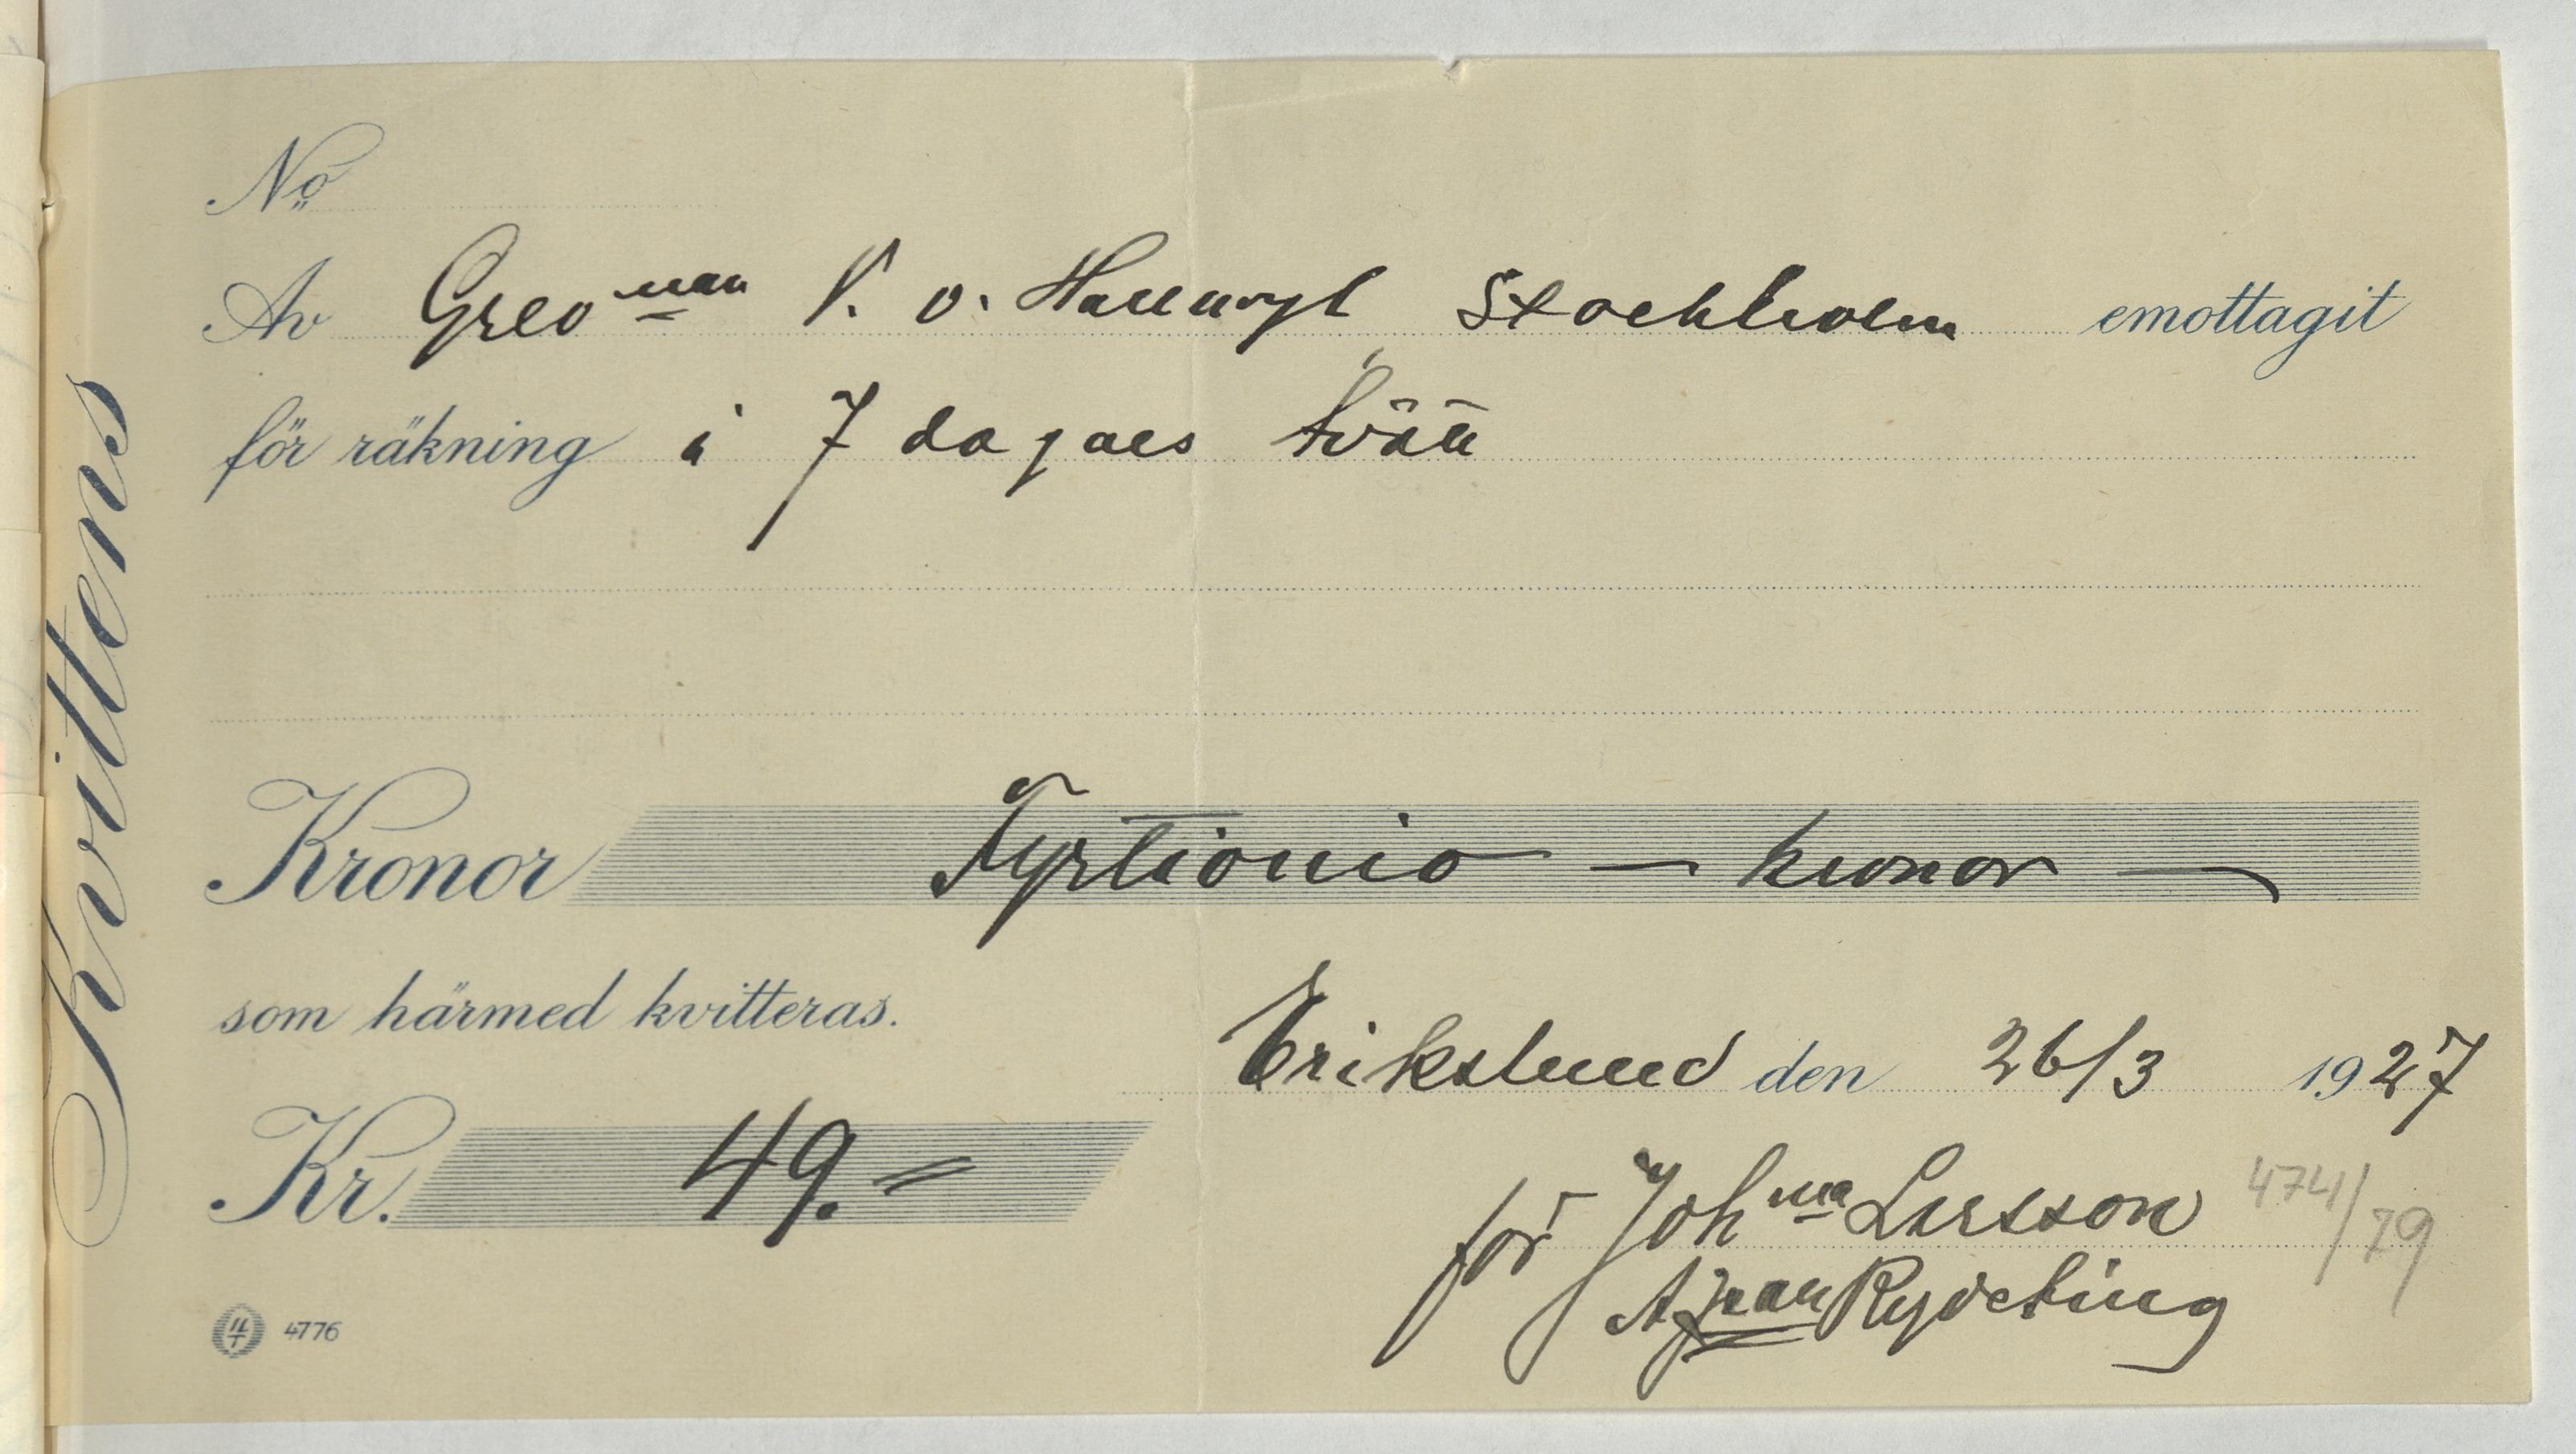 Kvittens
No
Av Grevinnan V. v. Hallwyl Stockholm emottagit
för räkning i 7 dagars tvätt
Kronor Fyrtionio — kronor —
som härmed kvitteras.
Erikslund den 26/3 1927
Kr. 49.=
för Johna Larsson 474/79
Rydeting
4776